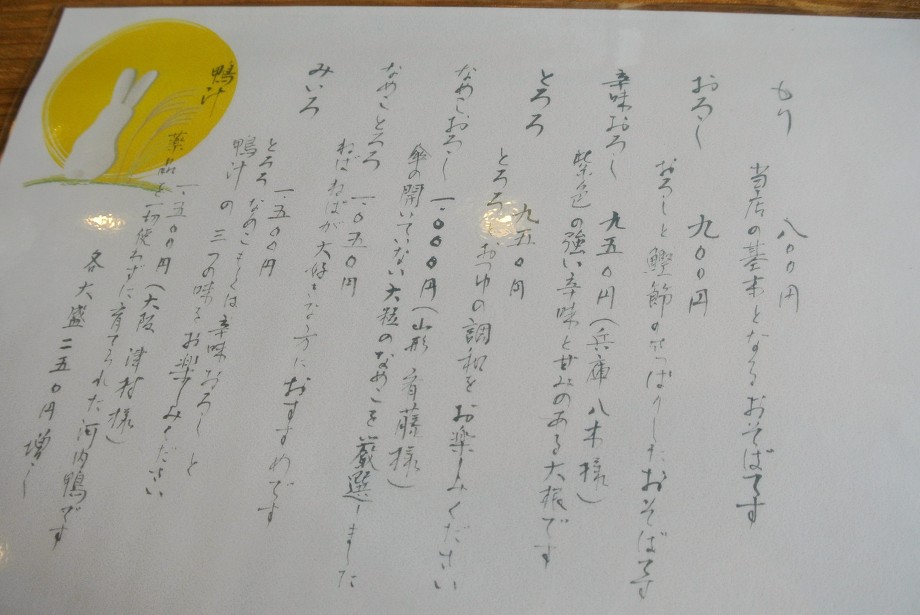 もり 八〇〇円
当店の基本となるおそばです
おろし 九〇〇円
おろしと鰹節のさっぱりしたおそばです
辛味おろし 九五〇円(兵庫 八木様)
紫色の強い辛味と甘みのある大根です
とろろ 九五〇円
とろろとおつゆの調和をお楽しみください
なめこおろし 一、〇〇〇円(山形 斉藤様)
傘の開いていない大粒のなめこを厳選しました
なめことろろ 一、〇五〇円
ねばねばが大好きな方におすすめです
みいろ 一、五〇〇円
とろろ なめこ もしくは辛味おろし と
鴨汁 の 三つの味をお楽しみください
鴨汁 一、五〇〇円(大阪 津村様)
薬品を一切使わずに育てられた河内鴨です
各大盛二五〇円増し